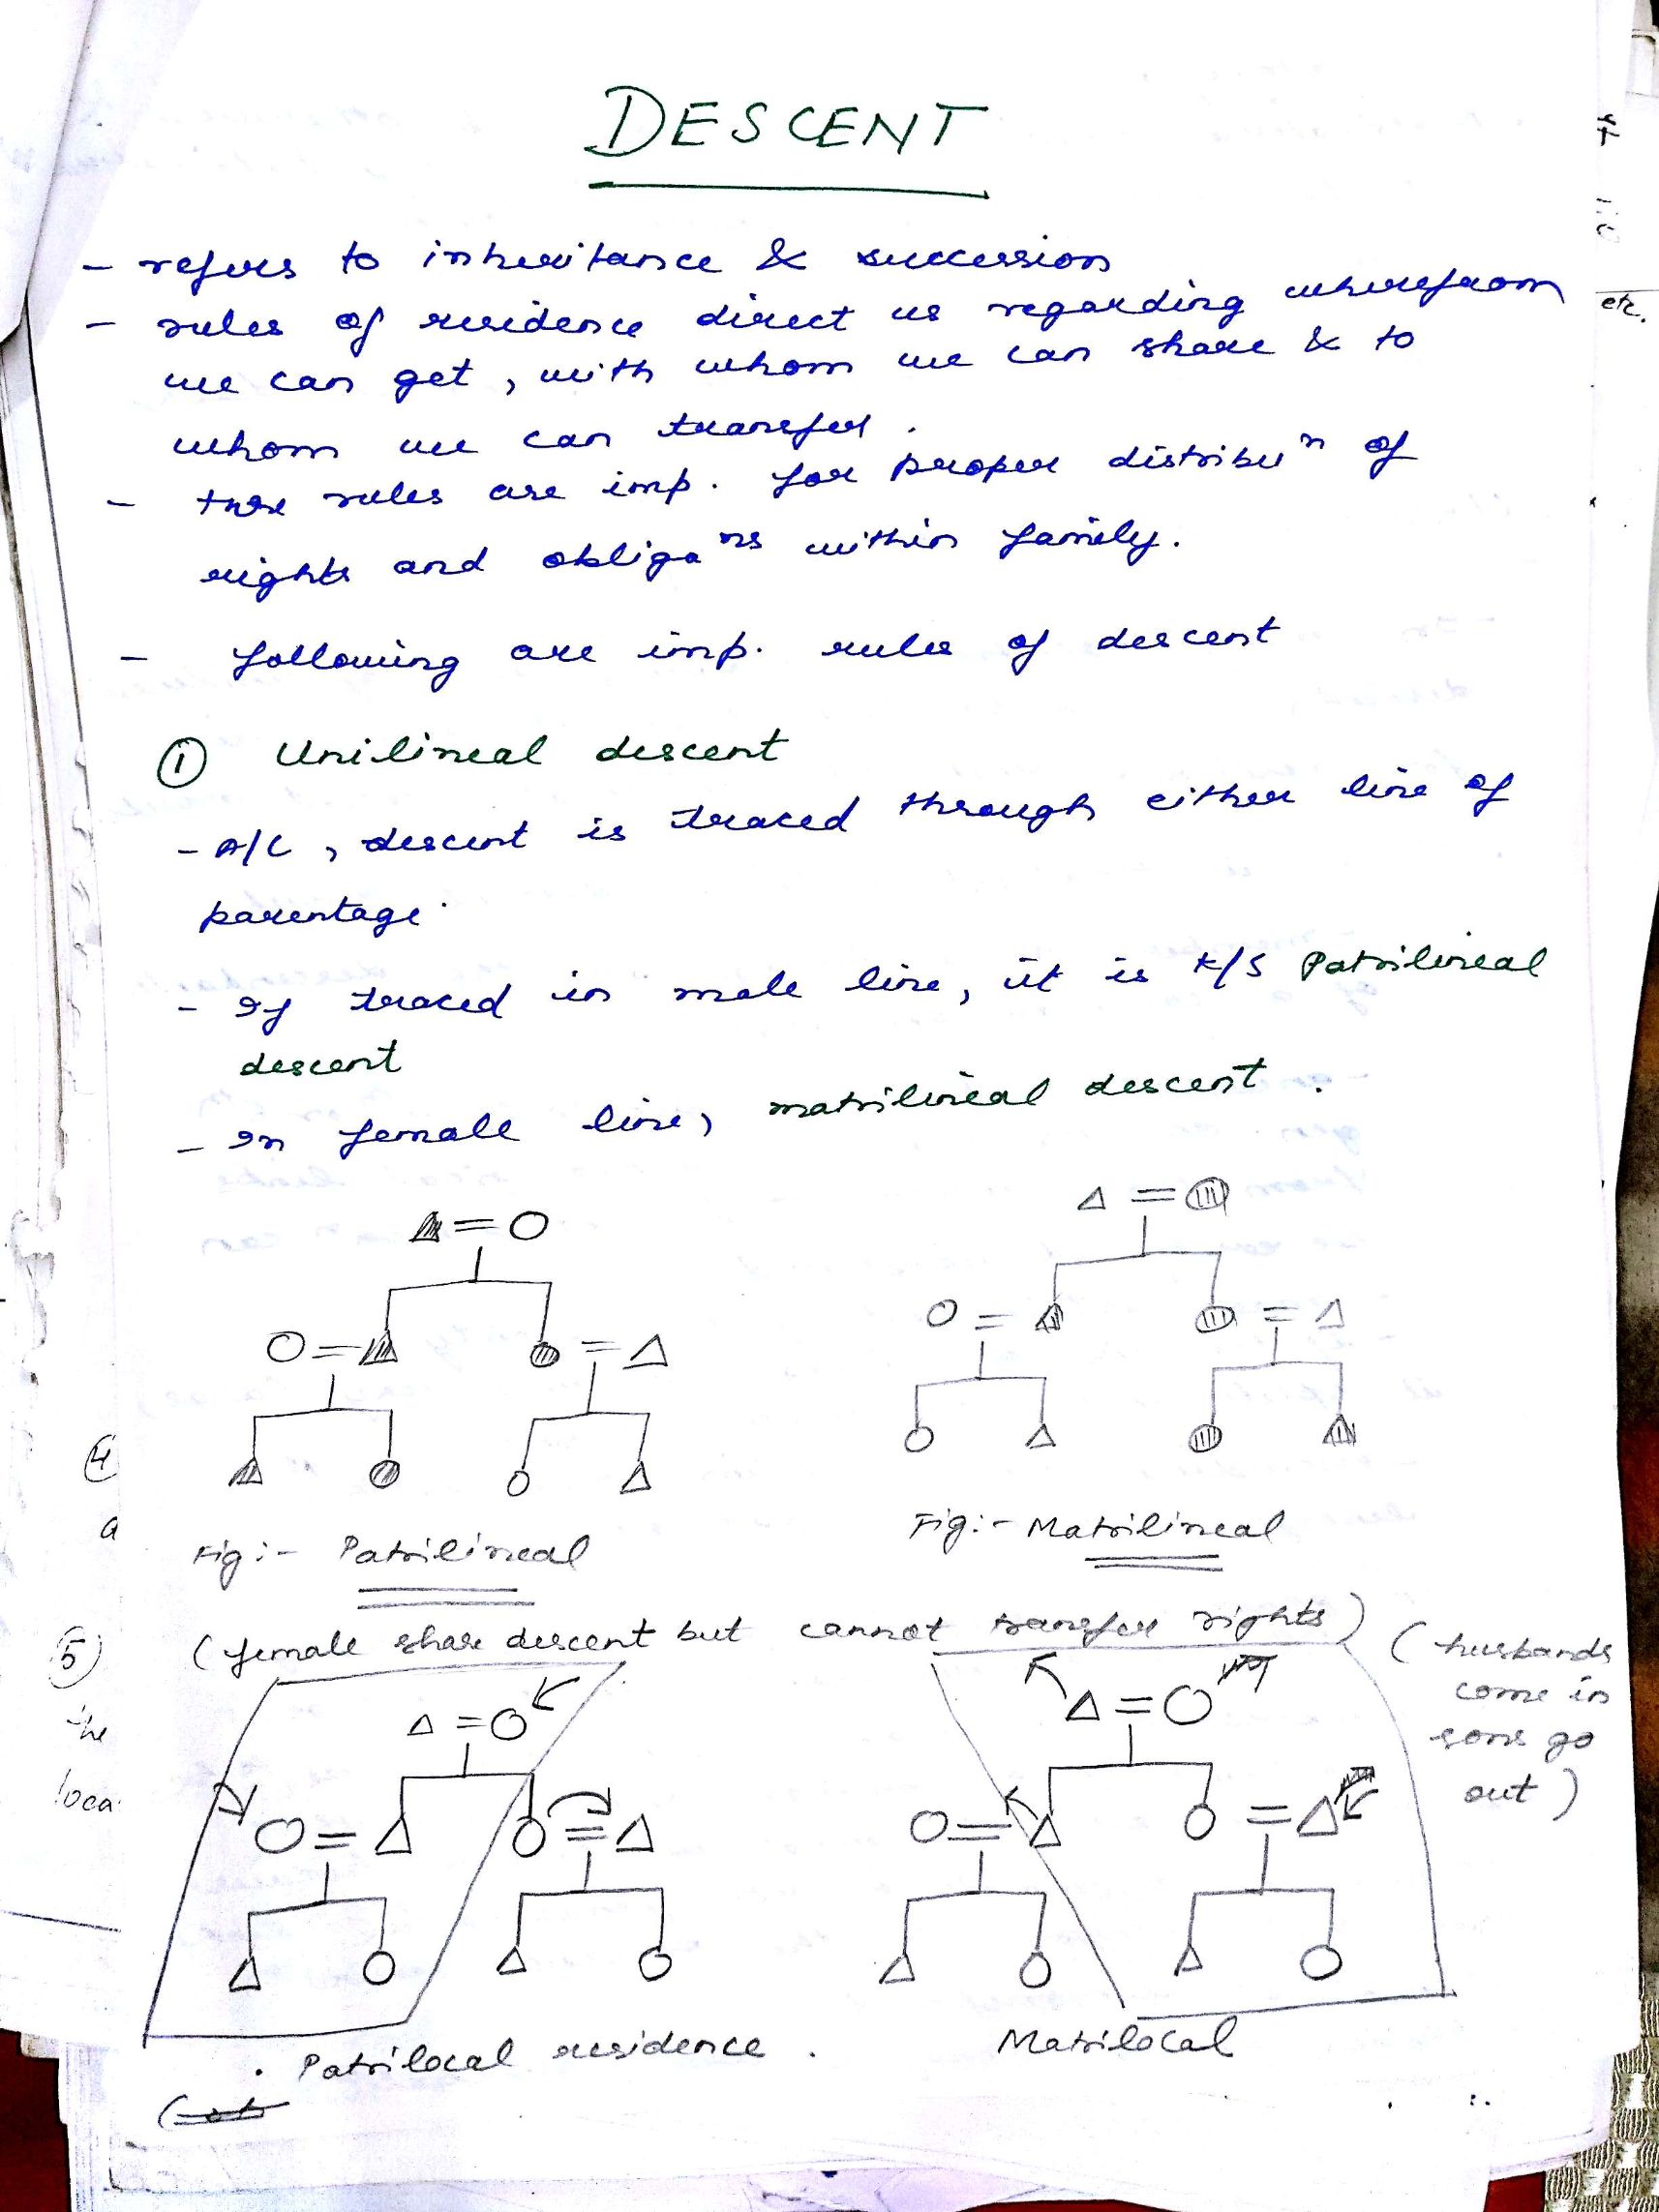 DESCENT
- refers to inheritance & succession
- rules of residence direct us regarding wherefrom
we can get, with whom we can share & to
whom we can transfer.
- these rules are imp. for proper distribuⁿ of
rights and obligaⁿˢ within family.
- following are imp. rules of descent
① Unilineal descent
- A/C, descent is traced through either line of
parentage.
- If traced in male line, it is K/S Patrilineal
descent
- In female line, matrilineal descent.
Fig:- Patrilineal
Fig:- Matrilineal
(female share descent but cannot transfer rights)
(husbands
come in
sons go
out)
Patrilocal residence.
Matrilocal
etc.
④
a
⑤
the
loca